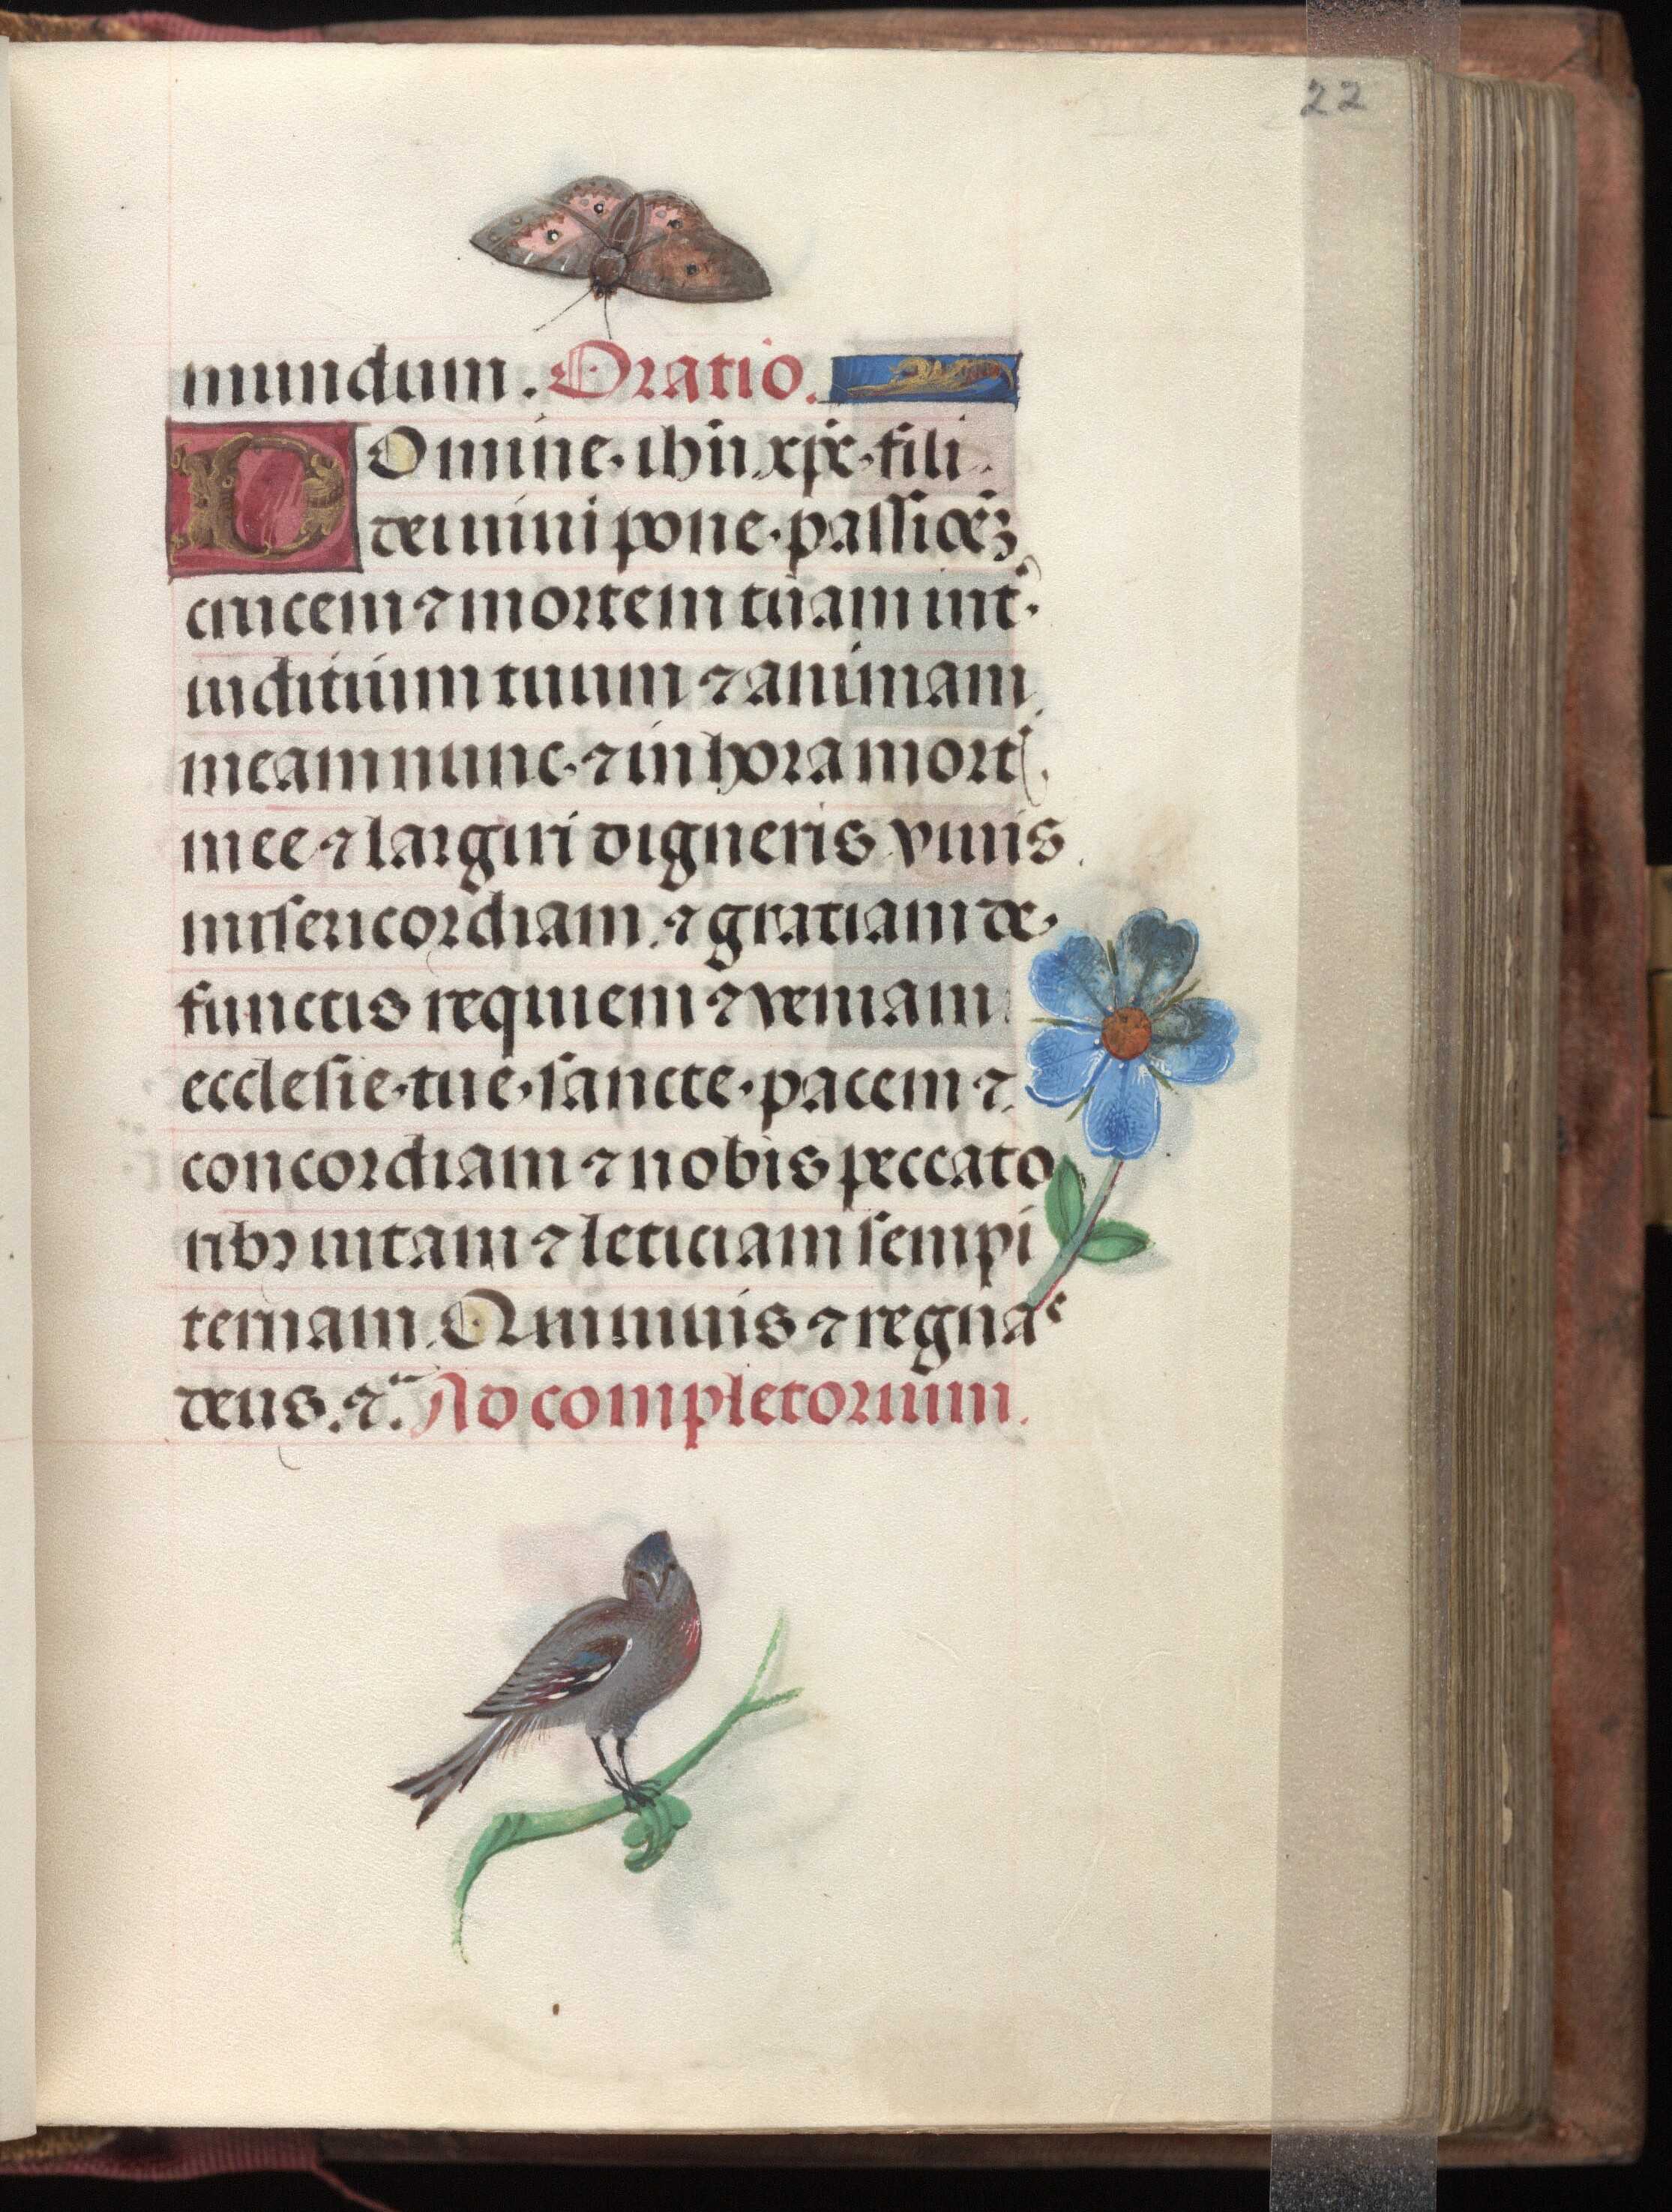 22
mundum. Oratio.
Domine ihū xp̄e fili
dei uiui pone passioēꝫ
crucem ⁊ mortem tuam int̾
iuditium tuum ⁊ animam
meam nunc ⁊ in hora mortꝭ
mee ⁊ largiri digneris viuis
misericordiam ⁊ gratiam de
functis requiem ⁊ veniam
ecclesie tue sancte pacem ⁊
concordiam ⁊ nobis peccato
ribꝫ uitam ⁊ leticiam sempi
ternam. Qui uiuis ⁊ regnas
deus. ⁊c̄. Ad completorium.